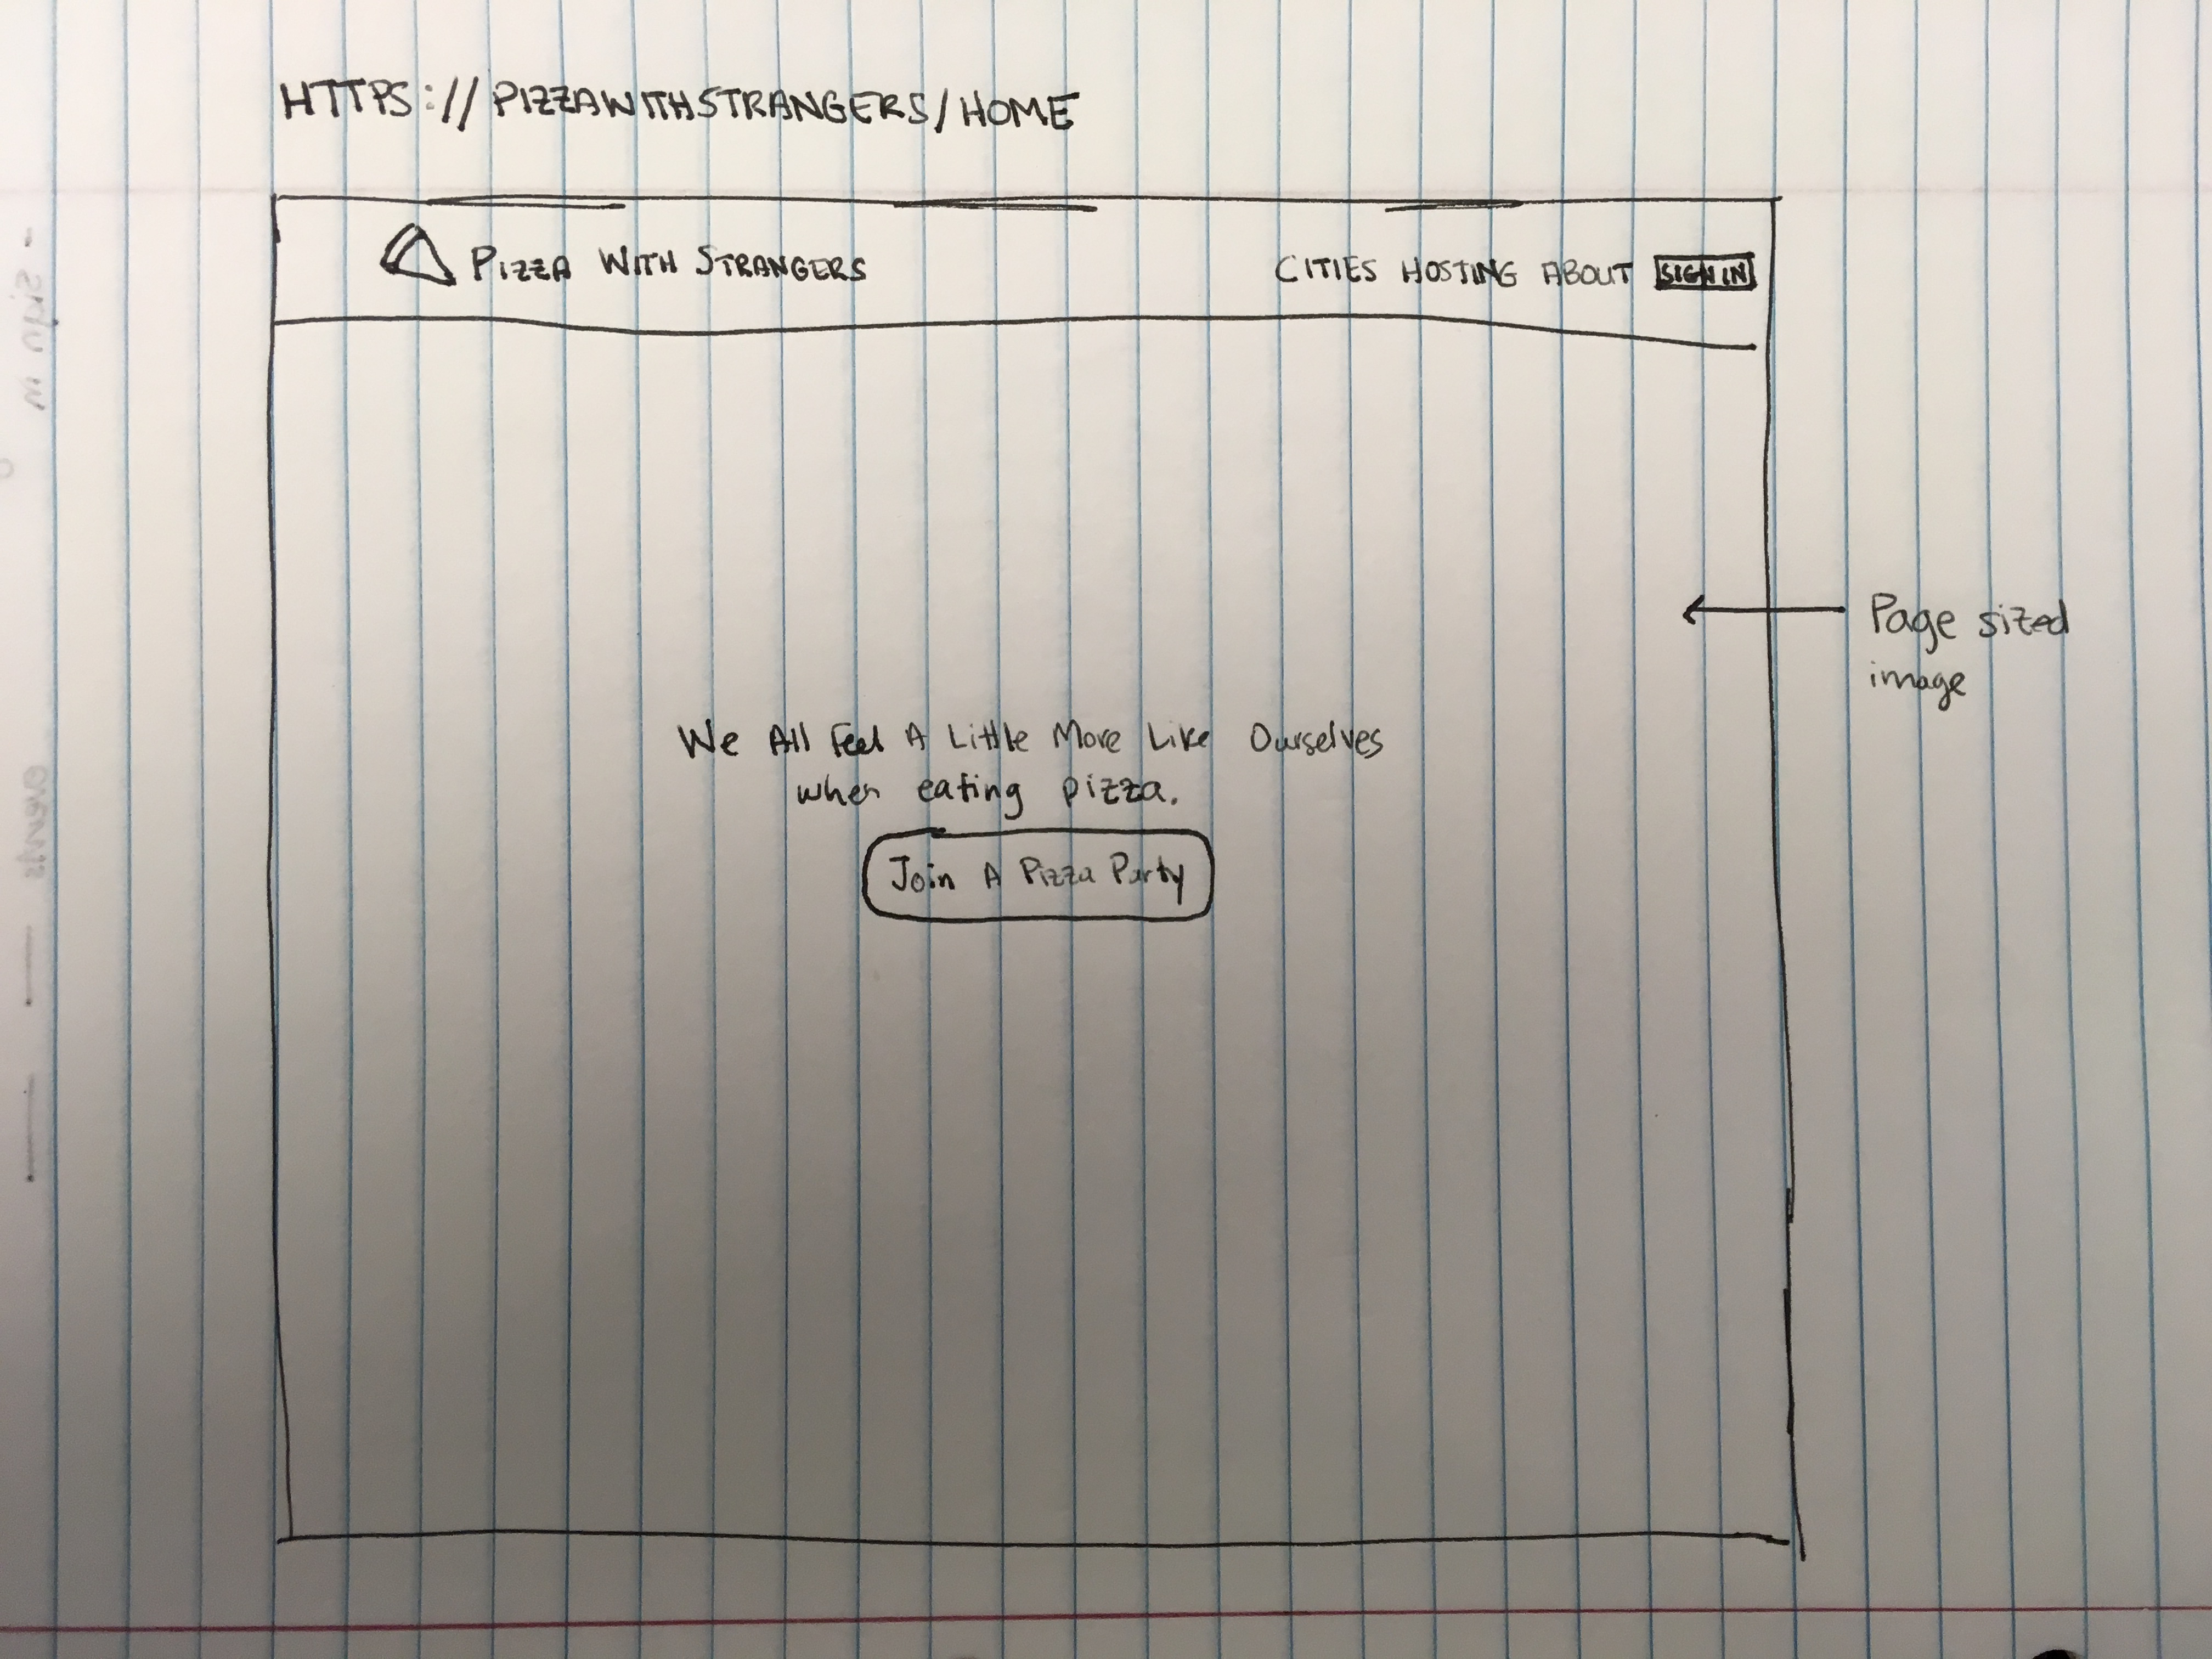 HTTPS://PIZZAWITHSTRANGERS/HOME
PIZZA WITH STRANGERS
CITIES HOSTING ABOUT SIGN IN
Page sized
image
We All Feel A Little More Like Ourselves
when eating pizza.
Join A Pizza Party
- sign in
events